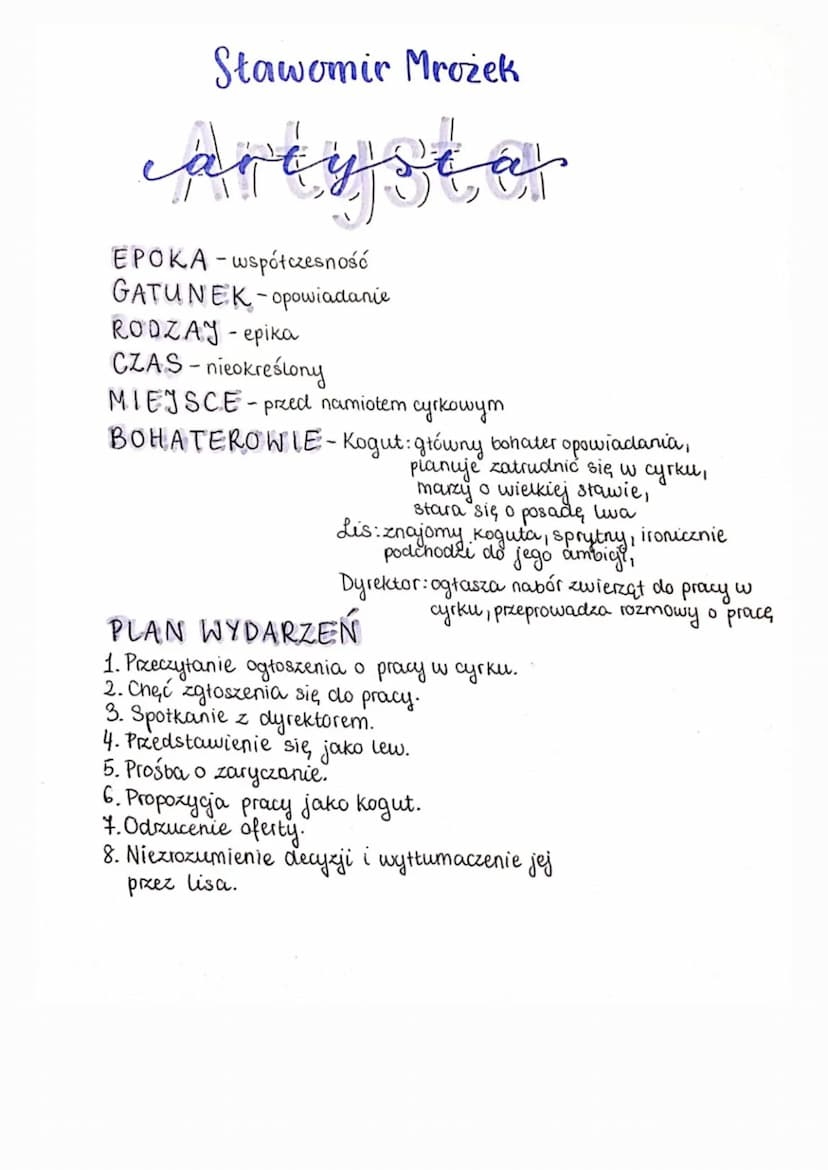 Sławomir Mrożek
artysta
EPOKA - współczesność
GATUNEK - opowiadanie
RODZAJ - epika
CZAS - nieokreślony
MIEJSCE - przed namiotem cyrkowym
BOHATEROWIE - Kogut: główny bohater opowiadania,
planuje zatrudnić się w cyrku,
marzy o wielkiej sławie,
stara się o posadę lwa
Lis: znajomy koguta, sprytny, ironicznie
podchodzi do jego ambicji,
Dyrektor: ogłasza nabór zwierząt do pracy w
cyrku, przeprowadza rozmowy o pracę
PLAN WYDARZEŃ
1. Przeczytanie ogłoszenia o pracy w cyrku.
2. Chęć zgłoszenia się do pracy.
3. Spotkanie z dyrektorem.
4. Przedstawienie się jako lew.
5. Prośba o zaryczanie.
6. Propozycja pracy jako kogut.
7. Odrzucenie oferty.
8. Niezrozumienie decyzji i wytłumaczenie jej
przez lisa.